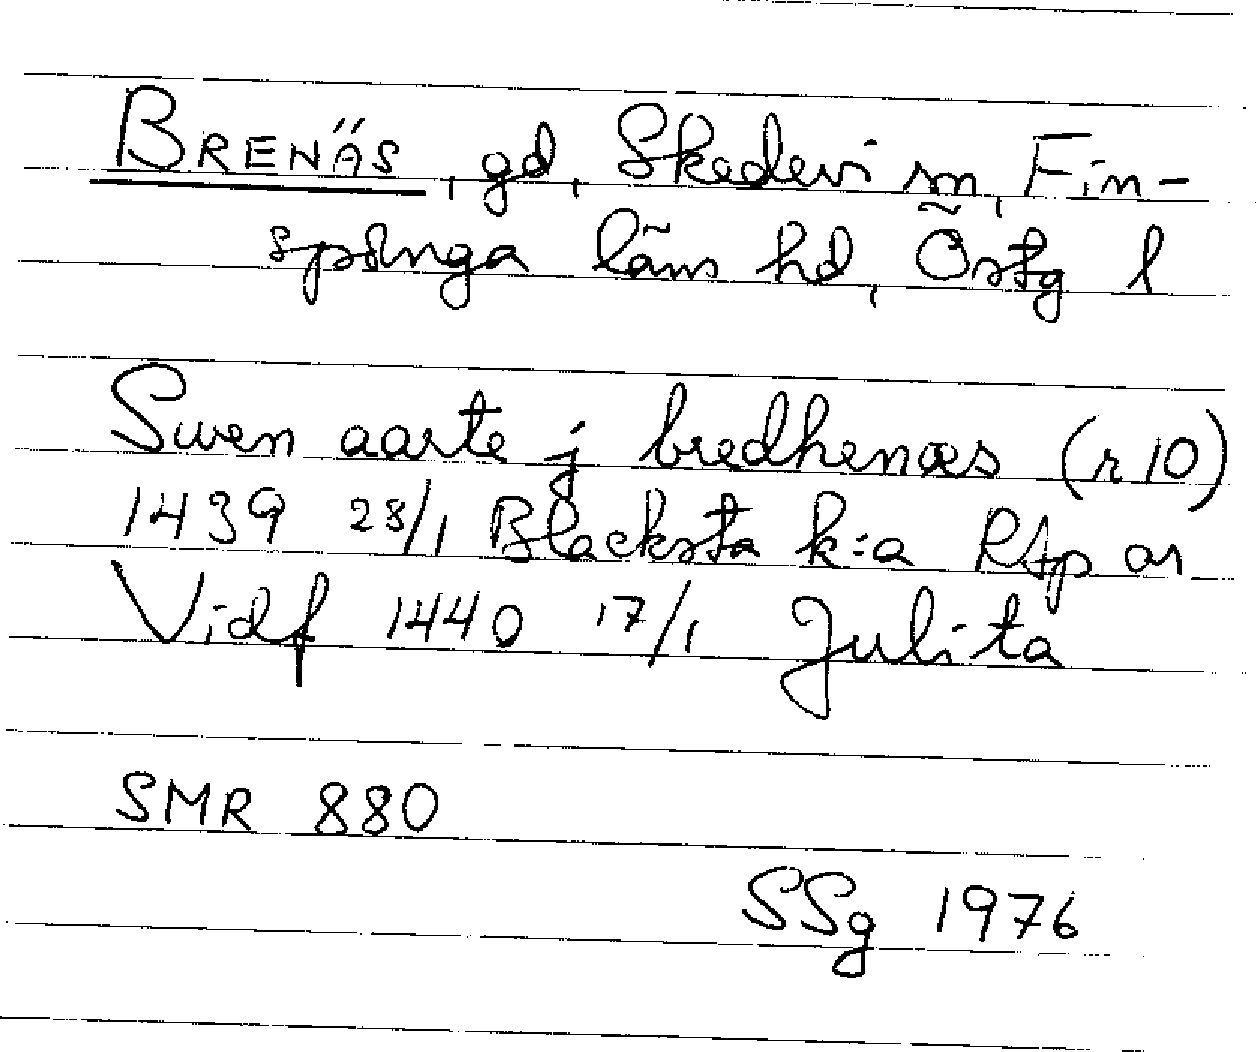 BRENÄS, gd, Skedevi sn, Fin-
spånga läns hd, Östg l
Swen aarte j bredhenæs (r 10)
1439 28/1 Blacksta k:a Rtp ar
Vidf 1440 17/1 Julita
SMR 880
SSg 1976